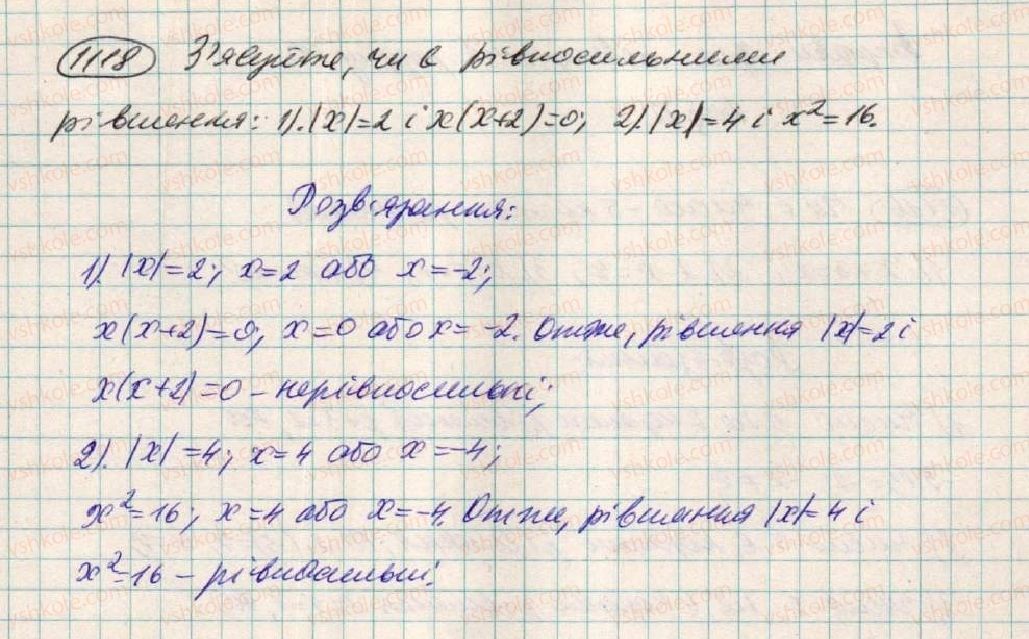 1118 З'ясуйте, чи є рівносильними
рівняння: 1). |x|=2 і x(x+2)=0; 2). |x|=4 і x²=16.
Розв'язання:
1). |x|=2; x=2 або x=-2;
x(x+2)=0; x=0 або x=-2. Отже, рівняння |x|=2 і
x(x+2)=0 – нерівносильні;
2). |x|=4; x=4 або x=-4;
x²=16; x=4 або x=-4. Отже, рівняння |x|=4 і
x²=16 – рівносильні.